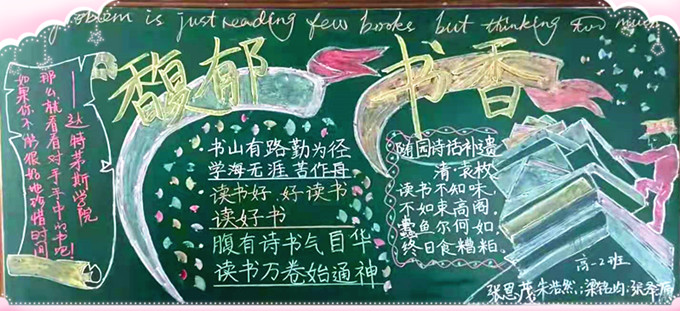 problem is just reading few books but thinking too much
馥郁书香
如果你不能很好地珍惜时间
那么就看看对手手中的书吧!
——达特茅斯学院
·书山有路勤为径
学海无涯苦作舟
·读书好,好读书
读好书
·腹有诗书气自华
读书万卷始通神
随园诗话补遗
清·袁枚
读书不知味,
不如束高阁,
蠹鱼尔何如,
终日食糟粕。
高一2班
张思茂 朱浩然